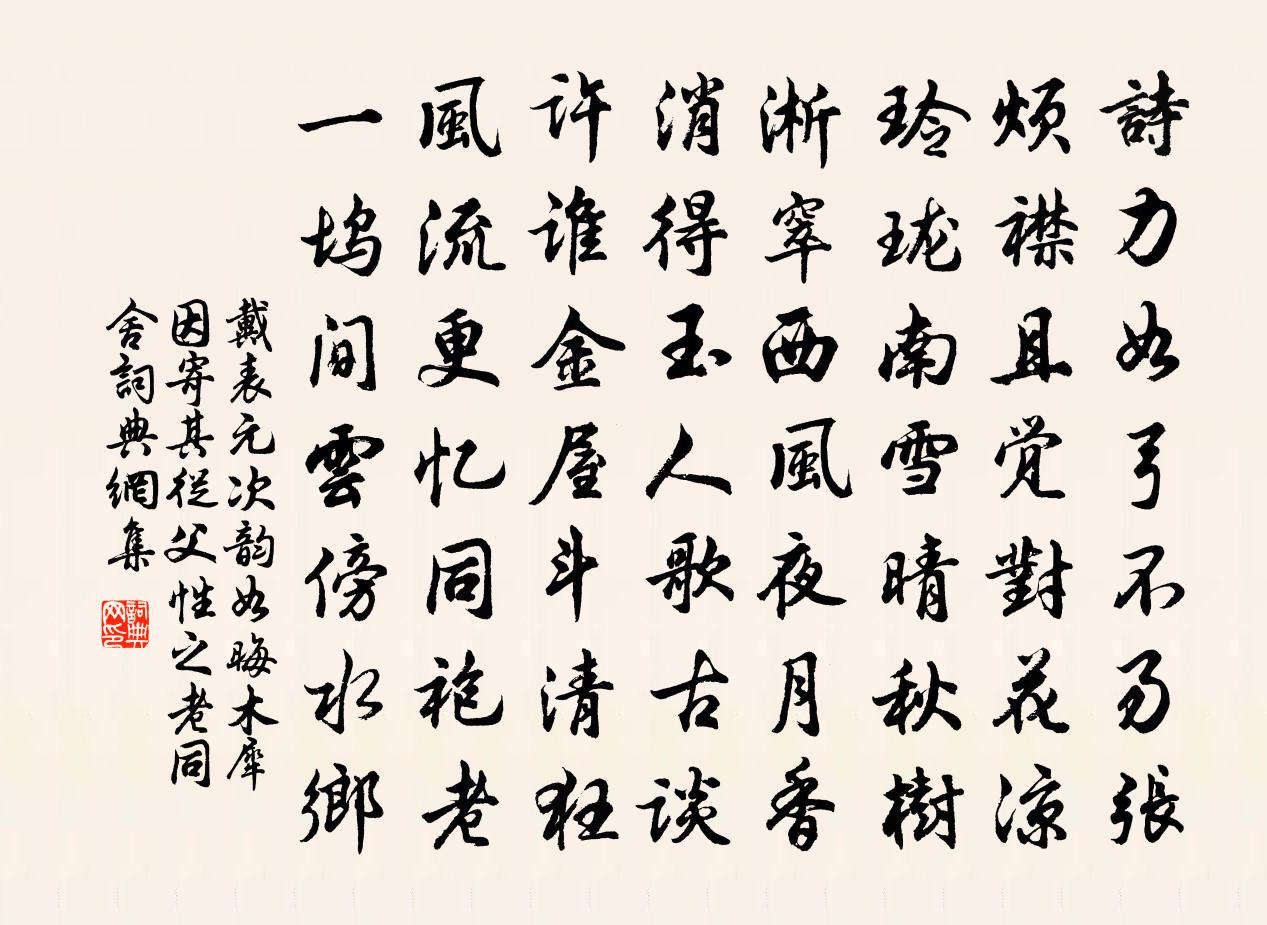 詩力如弓不易張
烦襟且觉對花凉
玲珑南雪晴秋樹
淅窣西風夜月香
消得玉人歌古谈
许谁金屋斗清狂
風流更忆同袍老
一坞间雲傍水鄉
戴表元次韵如晦木犀
因寄其從父性之老同
舍詞典網集
詞典
网印